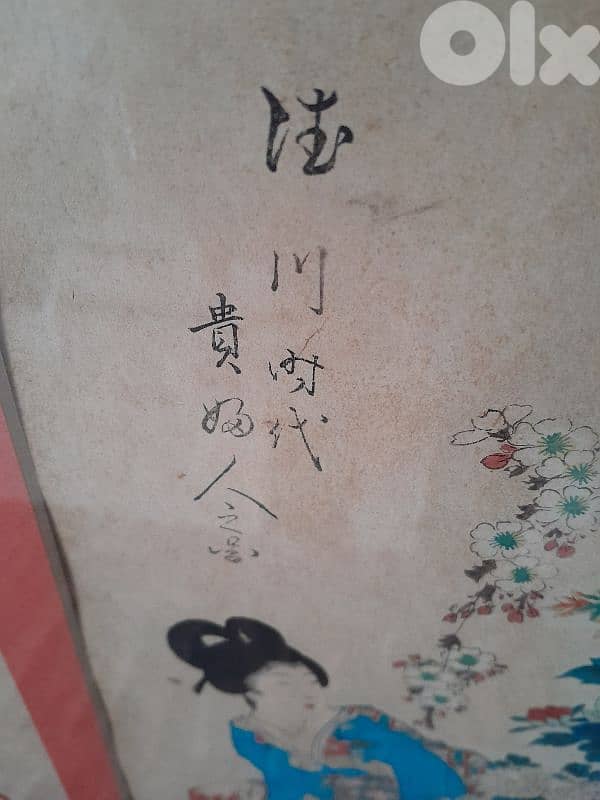 Olx
徳川時代
貴婦人之図